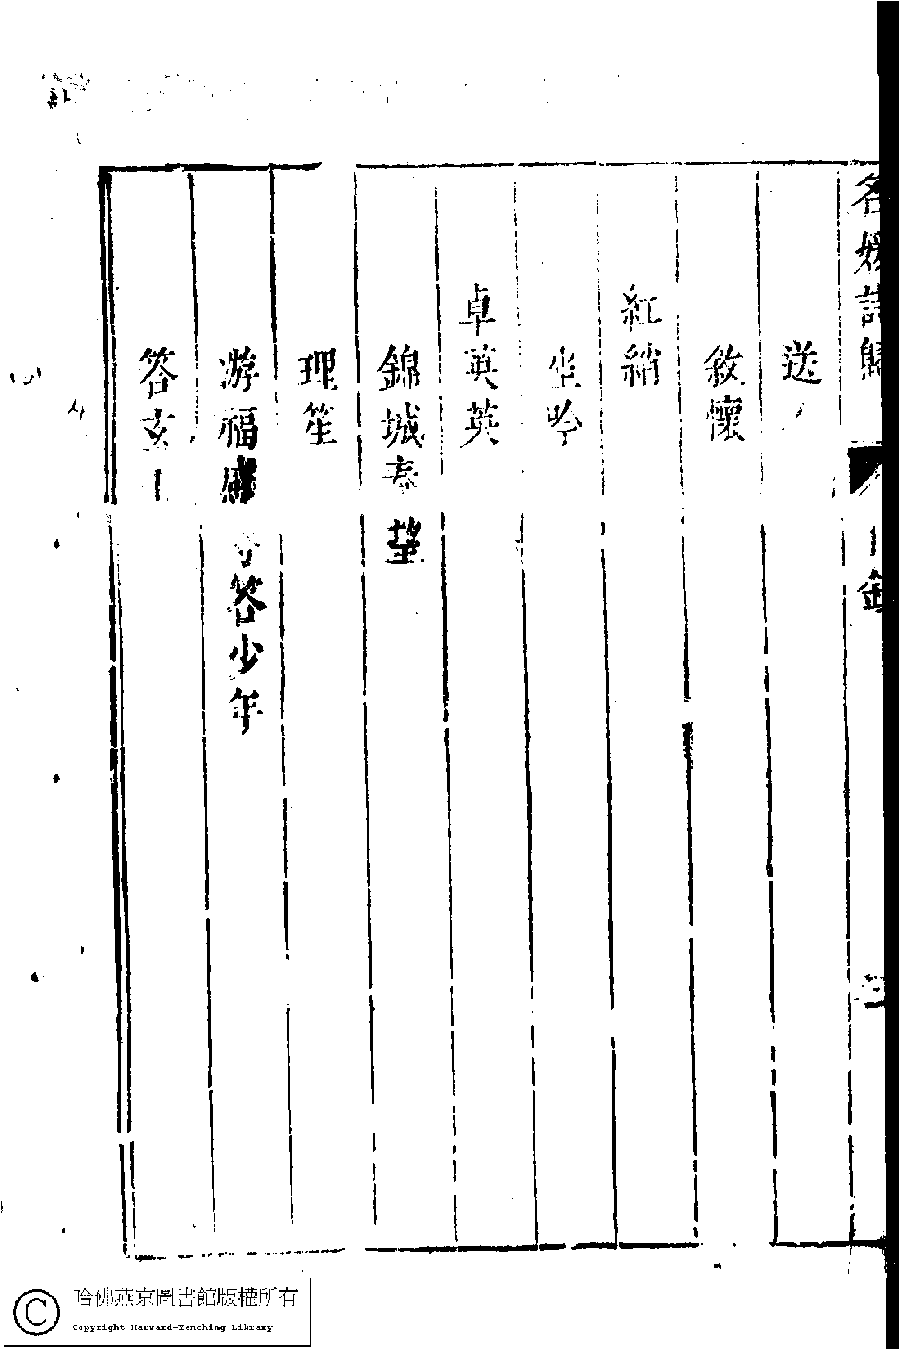 名媛詩歸
目錄
送人
敘懷
紅綃
坐吟
卓英英
錦城春望
理笙
游福感寺答少年
答玄士
哈佛燕京圖書館版權所有
Copyright Harvard-Yenching Library